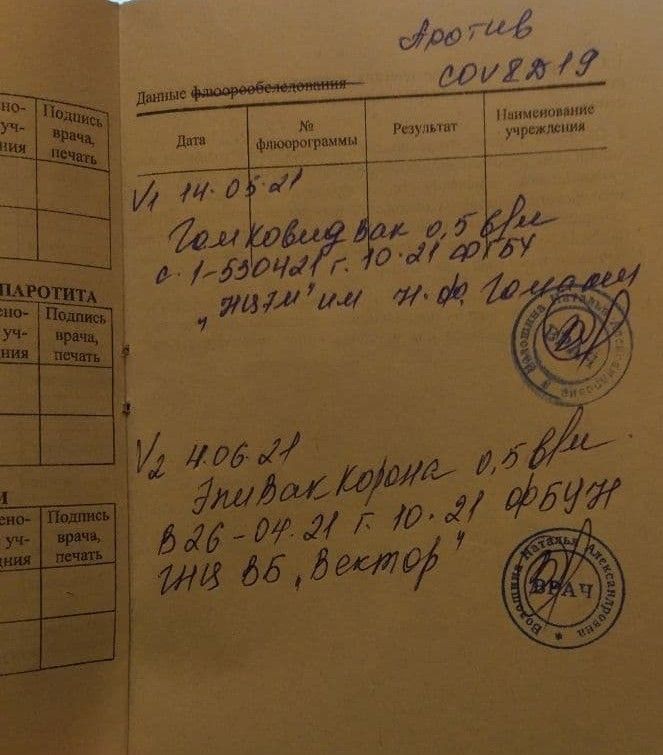 Против
COVID19
Данные флюорообследования
Дата
№ флюорограммы
Результат
Наименование учреждения
V1 14.05.21
Гам Ковид Вак 0,5 в/м
с. 1-530421 г. 10.21 ФГБУ
"НЦЭМ" им Н.Ф. Гамалеи
Волошина Наталья Александровна
ВРАЧ
V2 4.06.21
ЭпиВакКорона 0,5 в/м.
В26-04.21 г. 10.21 ФБУН
ГНЦ ВБ „Вектор"
Волошина Наталья Александровна
ВРАЧ
но-
уч-
ния
Подпись
врача,
печать
ПАРОТИТА
ено-
уч-
ния
Подпись
врача,
печать
И
ено-
уч-
дния
Подпись
врача,
печать